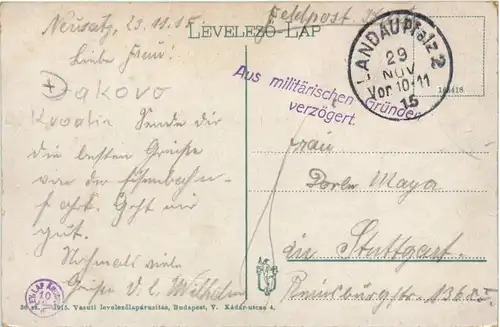 Neusatz, 23.11.15
Feldpost
LEVELEZŐ-LAP
Liebe Frau!
Đakovo
Kroatia Sende dir
die besten Grüße
von der Eisenbahn-
fahrt. Geht mir
gut.
Nochmals viele
Grüße v. l. Wilhelm
LANDAU Pfalz 2
29
NOV
Vor 10-11
15
Aus militärischen Gründen
verzögert.
163418
Frau
Mayer
in Stuttgart.
136
1915. Vasuti levelezőlapárusitás, Budapest, V. Kádár-utcza 4.